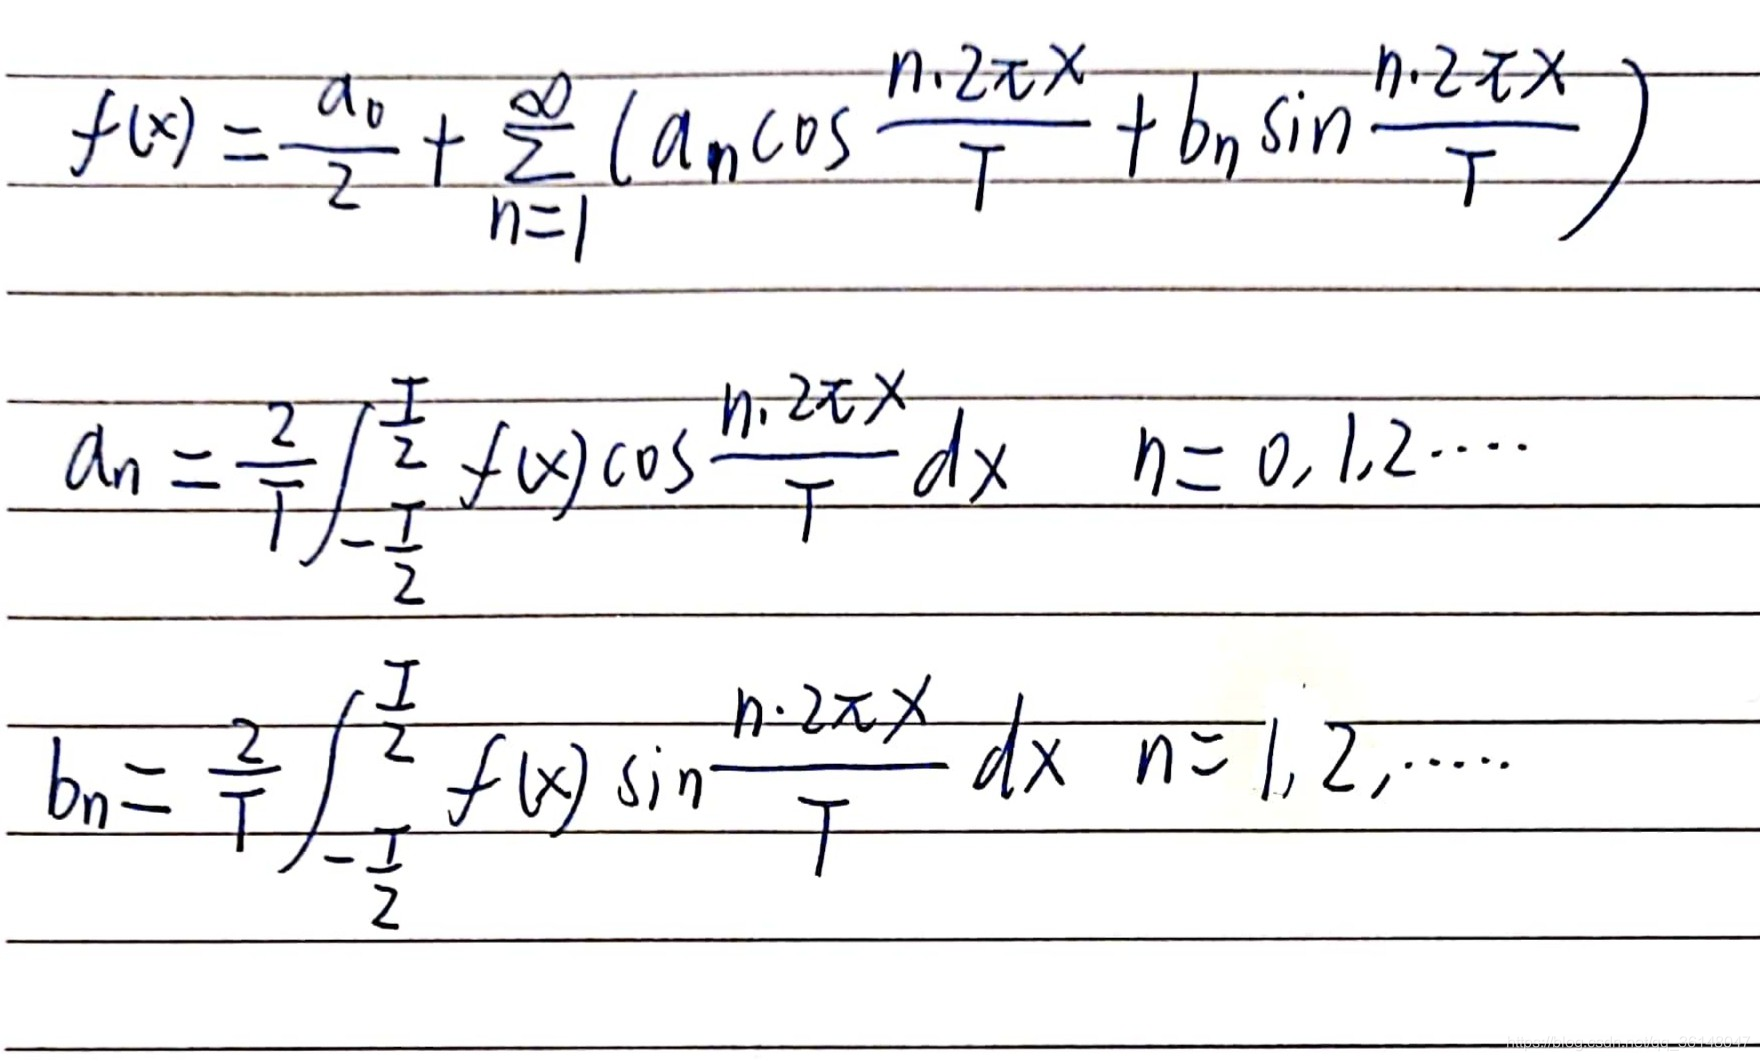 f(x) = a₀/2 + ∑_{n=1}^{∞} (aₙ cos n·2πx/T + bₙ sin n·2πx/T)
aₙ = 2/T ∫_{-T/2}^{T/2} f(x) cos n·2πx/T dx n = 0, 1, 2 ····
bₙ = 2/T ∫_{-T/2}^{T/2} f(x) sin n·2πx/T dx n = 1, 2, ·····